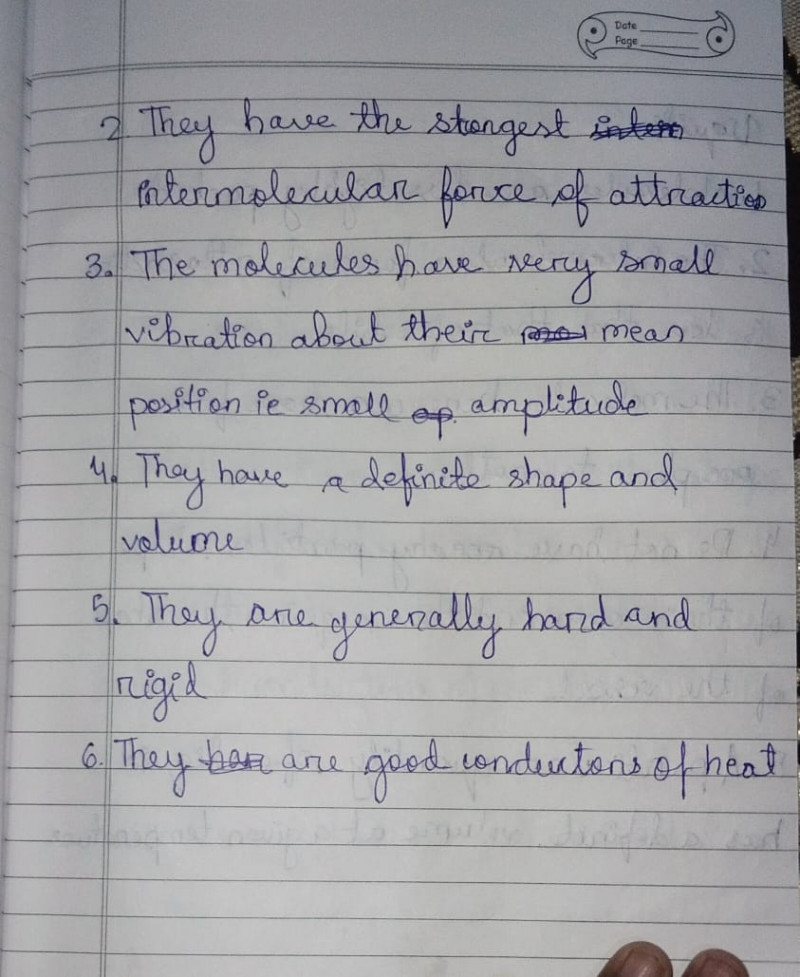 Date
Page
2. They have the stongest
intermolecular force of attraction
3. The molecules have very small
vibration about their mean
position ie small amplitude
4. They have a definite shape and
volume
5. They are generally hard and
rigid
6. They are good conductors of heat